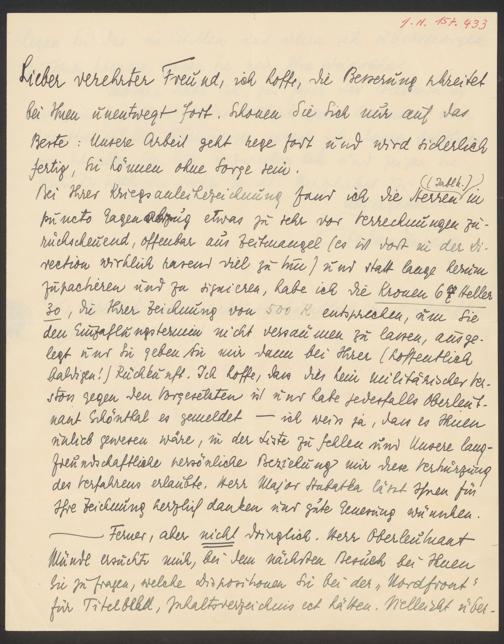 J.N. 157.433
Lieber verehrter Freund, ich hoffe, die Besserung schreitet
bei Ihnen unentwegt fort. Schonen Sie Sich nur auf das
Beste: Unsere Arbeit geht rege fort und wird sicherlich
fertig, Sie können ohne Sorge sein.
Bei Ihrer Kriegsanleihezeichnung fand ich die Herren in
puncto Gagenabzug etwas zu sehr vor Verrechnungen zu-
rückscheuend, offenbar aus Zeitmangel (es ist dort in der Di-
rection wirklich rasend viel zu tun) und statt lange herum
zu und zu signieren, habe ich die Kronen 69 Heller
30, die Ihrer Zeichnung von 500 K entsprechen, um Sie
den Einzahlungstermin nicht versäumen zu lassen, ausge-
legt und Sie geben Sie mir dann bei Ihrer (hoffentlich
baldigen!) Rückkunft. Ich hoffe, dass dies kein militärischer Ver-
stoss gegen den Vorgesetzten ist und habe jedesfalls Oberleut-
nant Schönthal es gemeldet — ich weiss ja, dass es Ihnen
unlieb gewesen wäre, in der Liste zu fehlen und Unsere lang-
freundschaftliche persönliche Beziehung mir diese Verkürzung
des Verfahrens erlaubte. Herr Major lässt Ihnen für
Ihre Zeichnung herzlich danken und gute Genesung wünschen.
Ferner, aber nicht dringlich. Herr Oberleutnant
Mündl ersuchte mich, bei dem nächsten Besuch bei Ihnen
Sie zu fragen, welche Dispositionen Sie bei der „Nordfront"
für Titelblatt, Inhaltsverzeichnis ect hätten. Vielleicht über-